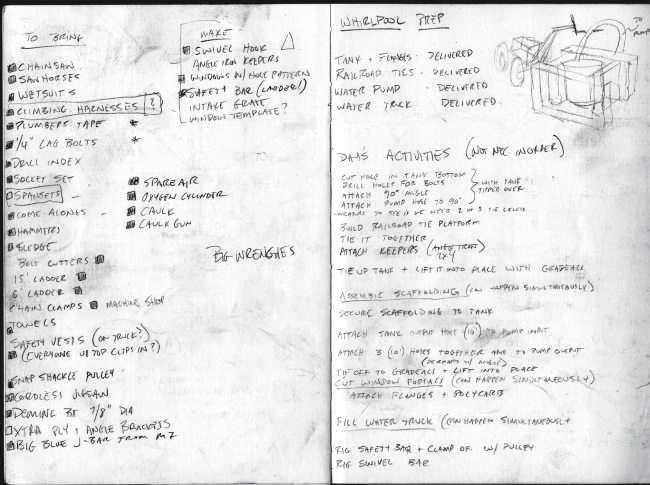 TO BRING
CHAINSAW
SAWHORSES
WETSUITS
CLIMBING HARNESSES ?
PLUMBERS TAPE *
1/4" LAG BOLTS *
DRILL INDEX
SOCKET SET
SPANSETS -
COME-ALONGS -
HAMMERS
SLEDGE
BOLT CUTTERS
15' LADDER
6' LADDER
CHAIN CLAMPS MACHINE SHOP
TOWELS
SAFETY VESTS (ON TRUCK?)
(EVERYONE UP TOP CLIPS IN?)
SNAP SHACKLE PULLEY
CORDLESS JIGSAW
DEMING BIT 7/8" DIA
XTRA PLY + ANGLE BRACKETS
BIG BLUE J-BAR FROM M7
MAKE
SWIVEL HOOK
ANGLE IRON KEEPERS
WINDOWS W/ HOLE PATTERN
SAFETY BAR (LADDER!)
INTAKE GRATE
WINDOW TEMPLATE?
SPARE AIR
OXYGEN CYLINDER
CAULK
CAULK GUN
BIG WRENCHES
WHIRLPOOL PREP
TO PUMP
TANK + FLANGES - DELIVERED
RAILROAD TIES - DELIVERED
WATER PUMP - DELIVERED
WATER TRUCK DELIVERED
DAY'S ACTIVITIES (NOT NEC IN ORDER)
CUT HOLE IN TANK BOTTOM
DRILL HOLES FOR BOLTS
ATTACH 90° ANGLE
ATTACH PUMP HOSE TO 90°
WITH TANK TIPPED OVER
MEASURE TO SEE IF WE NEED 2 OR 3 TIE LEVELS
BUILD RAILROAD TIE PLATFORM
TIE IT TOGETHER
ATTACH KEEPERS (ANGLE IRON) 2x4
TIE UP TANK + LIFT IT INTO PLACE WITH GRADEALL
ASSEMBLE SCAFFOLDING (CAN HAPPEN SIMULTANEOUSLY)
SECURE SCAFFOLDING TO TANK
ATTACH TANK OUTPUT HOSE (10') TO PUMP INPUT
ATTACH 3 (10') HOSES TOGETHER AND TO PUMP OUTPUT
(PERHAPS W/ ANGLE)
TIE OFF TO GRADEALL + LIFT INTO PLACE
CUT WINDOW PORTALS (CAN HAPPEN SIMULTANEOUSLY)
ATTACH FLANGES + POLYCARB
FILL WATER TRUCK (CAN HAPPEN SIMULTANEOUSLY
RIG SAFETY BAR + CLAMP OF. W/ PULLEY
RIG SWIVEL BAR